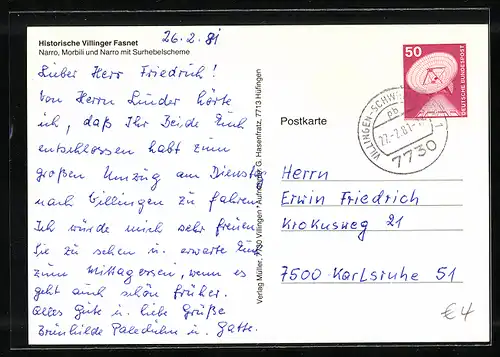 Historische Villinger Fasnet
Narro, Morbili und Narro mit Surhebelscheme
26.2.81
Lieber Herr Friedrich!
Von Herrn Linder hörte
ich, daß Ihr Beide Euch
entschlossen habt zum
großen Umzug am Dienstag
nach Villingen zu fahren.
Ich würde mich sehr freuen
Sie zu sehen u. erwarte Euch
zum Mittagessen, wenn es
geht auch schön früher.
Alles Gute u. liebe Grüße
Brünhilde u. Gatte.
Verlag Müller, 7730 Villingen * Aufn. G. Hasenfratz, 7713 Hüfingen
Postkarte
50
DEUTSCHE BUNDESPOST
VILLINGEN-SCHW
27.-2.81
7730
Herrn
Erwin Friedrich
Krokusweg 21
7500 Karlsruhe 51
€4